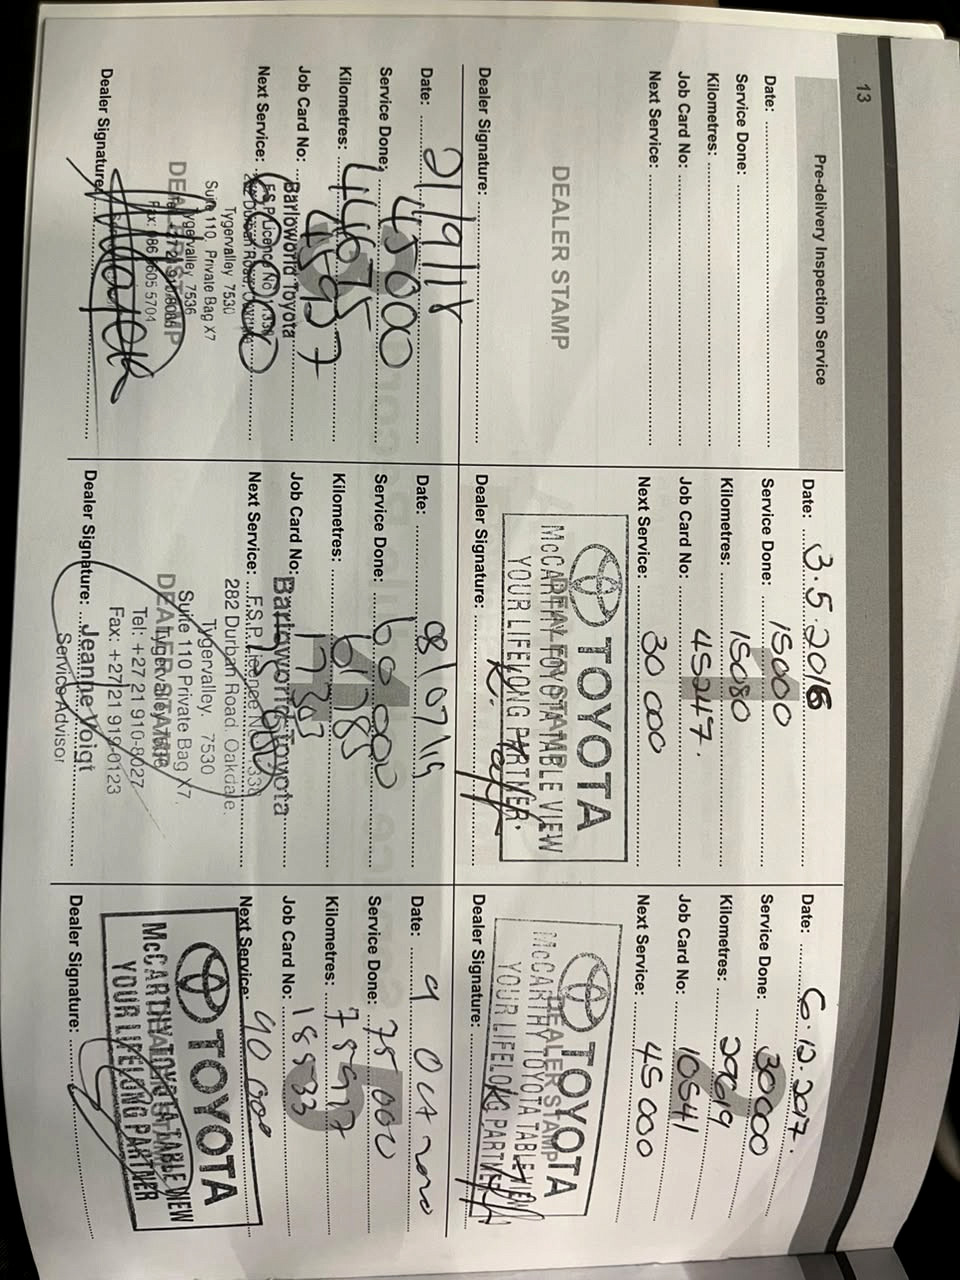 13
Pre-delivery Inspection Service
Date:
Service Done:
Kilometres:
Job Card No:
Next Service:
DEALER STAMP
Dealer Signature:
Date: 3.5.2016
Service Done: 15000
Kilometres: 15080
Job Card No: 45247.
Next Service: 30 000
DEALER STAMP
TOYOTA
McCARTHY TOYOTA TABLE VIEW
YOUR LIFELONG PARTNER.
Dealer Signature:
Date: 6.12.2017.
Service Done: 30000
Kilometres: 29619
Job Card No: 10541
Next Service: 45 000
DEALER STAMP
TOYOTA
McCARTHY TOYOTA TABLE VIEW
YOUR LIFELONG PARTNER
Dealer Signature:
Date: 21/9/18
Service Done: 45000
Kilometres: 44675
Job Card No: 4597
Barloworld Toyota
Next Service: 60000
F.S.P. Licence No
282 Durban Road,
Tygervalley 7530
Suite 110, Private Bag X7
Tygervalley 7536
DEALER STAMP
Fax: 086 605 5704
Dealer Signature:
Date: 08/07/19
Service Done: 60 000
Kilometres: 61785
Job Card No: 17303
Barloworld Toyota
Next Service:
F.S.P. Licence No
282 Durban Road, Oakdale,
Tygervalley. 7530
Suite 110 Private Bag X7,
Tygervalley
DEALER STAMP
Tel: +27 21 910-8027
Fax: +27 21 919-0123
Dealer Signature: Jeanne Voigt
Service Advisor
Date: 9 Oct 2020
Service Done: 75 000
Kilometres: 78997
Job Card No: 18533
Next Service: 90 000
TOYOTA
McCARTHY TOYOTA TABLE VIEW
YOUR LIFELONG PARTNER
Dealer Signature: